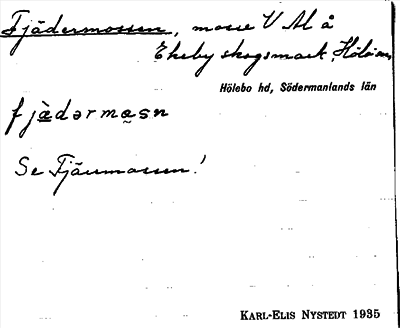 Fjädermossen, mosse V Al å
Ekeby skogsmark, Hölö sn,
Hölebo hd, Södermanlands län
fjädərmåsn
Se Fjärmossen!
KARL-ELIS NYSTEDT 1935